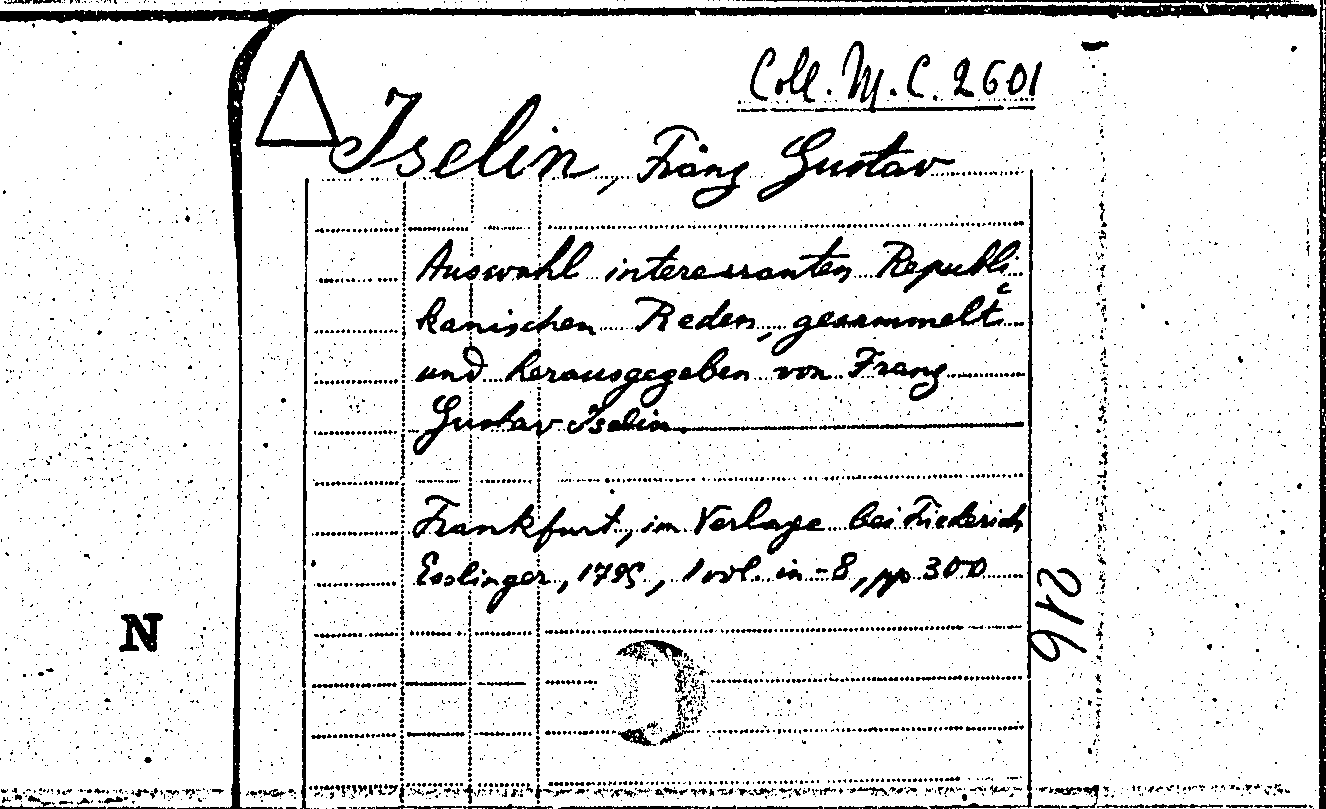 Coll. M. C. 2601
Iselin, Franz Gustav
Auswahl interessanten Republi
kanischen Reden, gesammelt
und herausgegeben von Franz
Gustav Iselin.
Frankfurt, im Verlage bei Friederich
Esslinger, 1795, 1 vol. in-8, pp 300
216
N